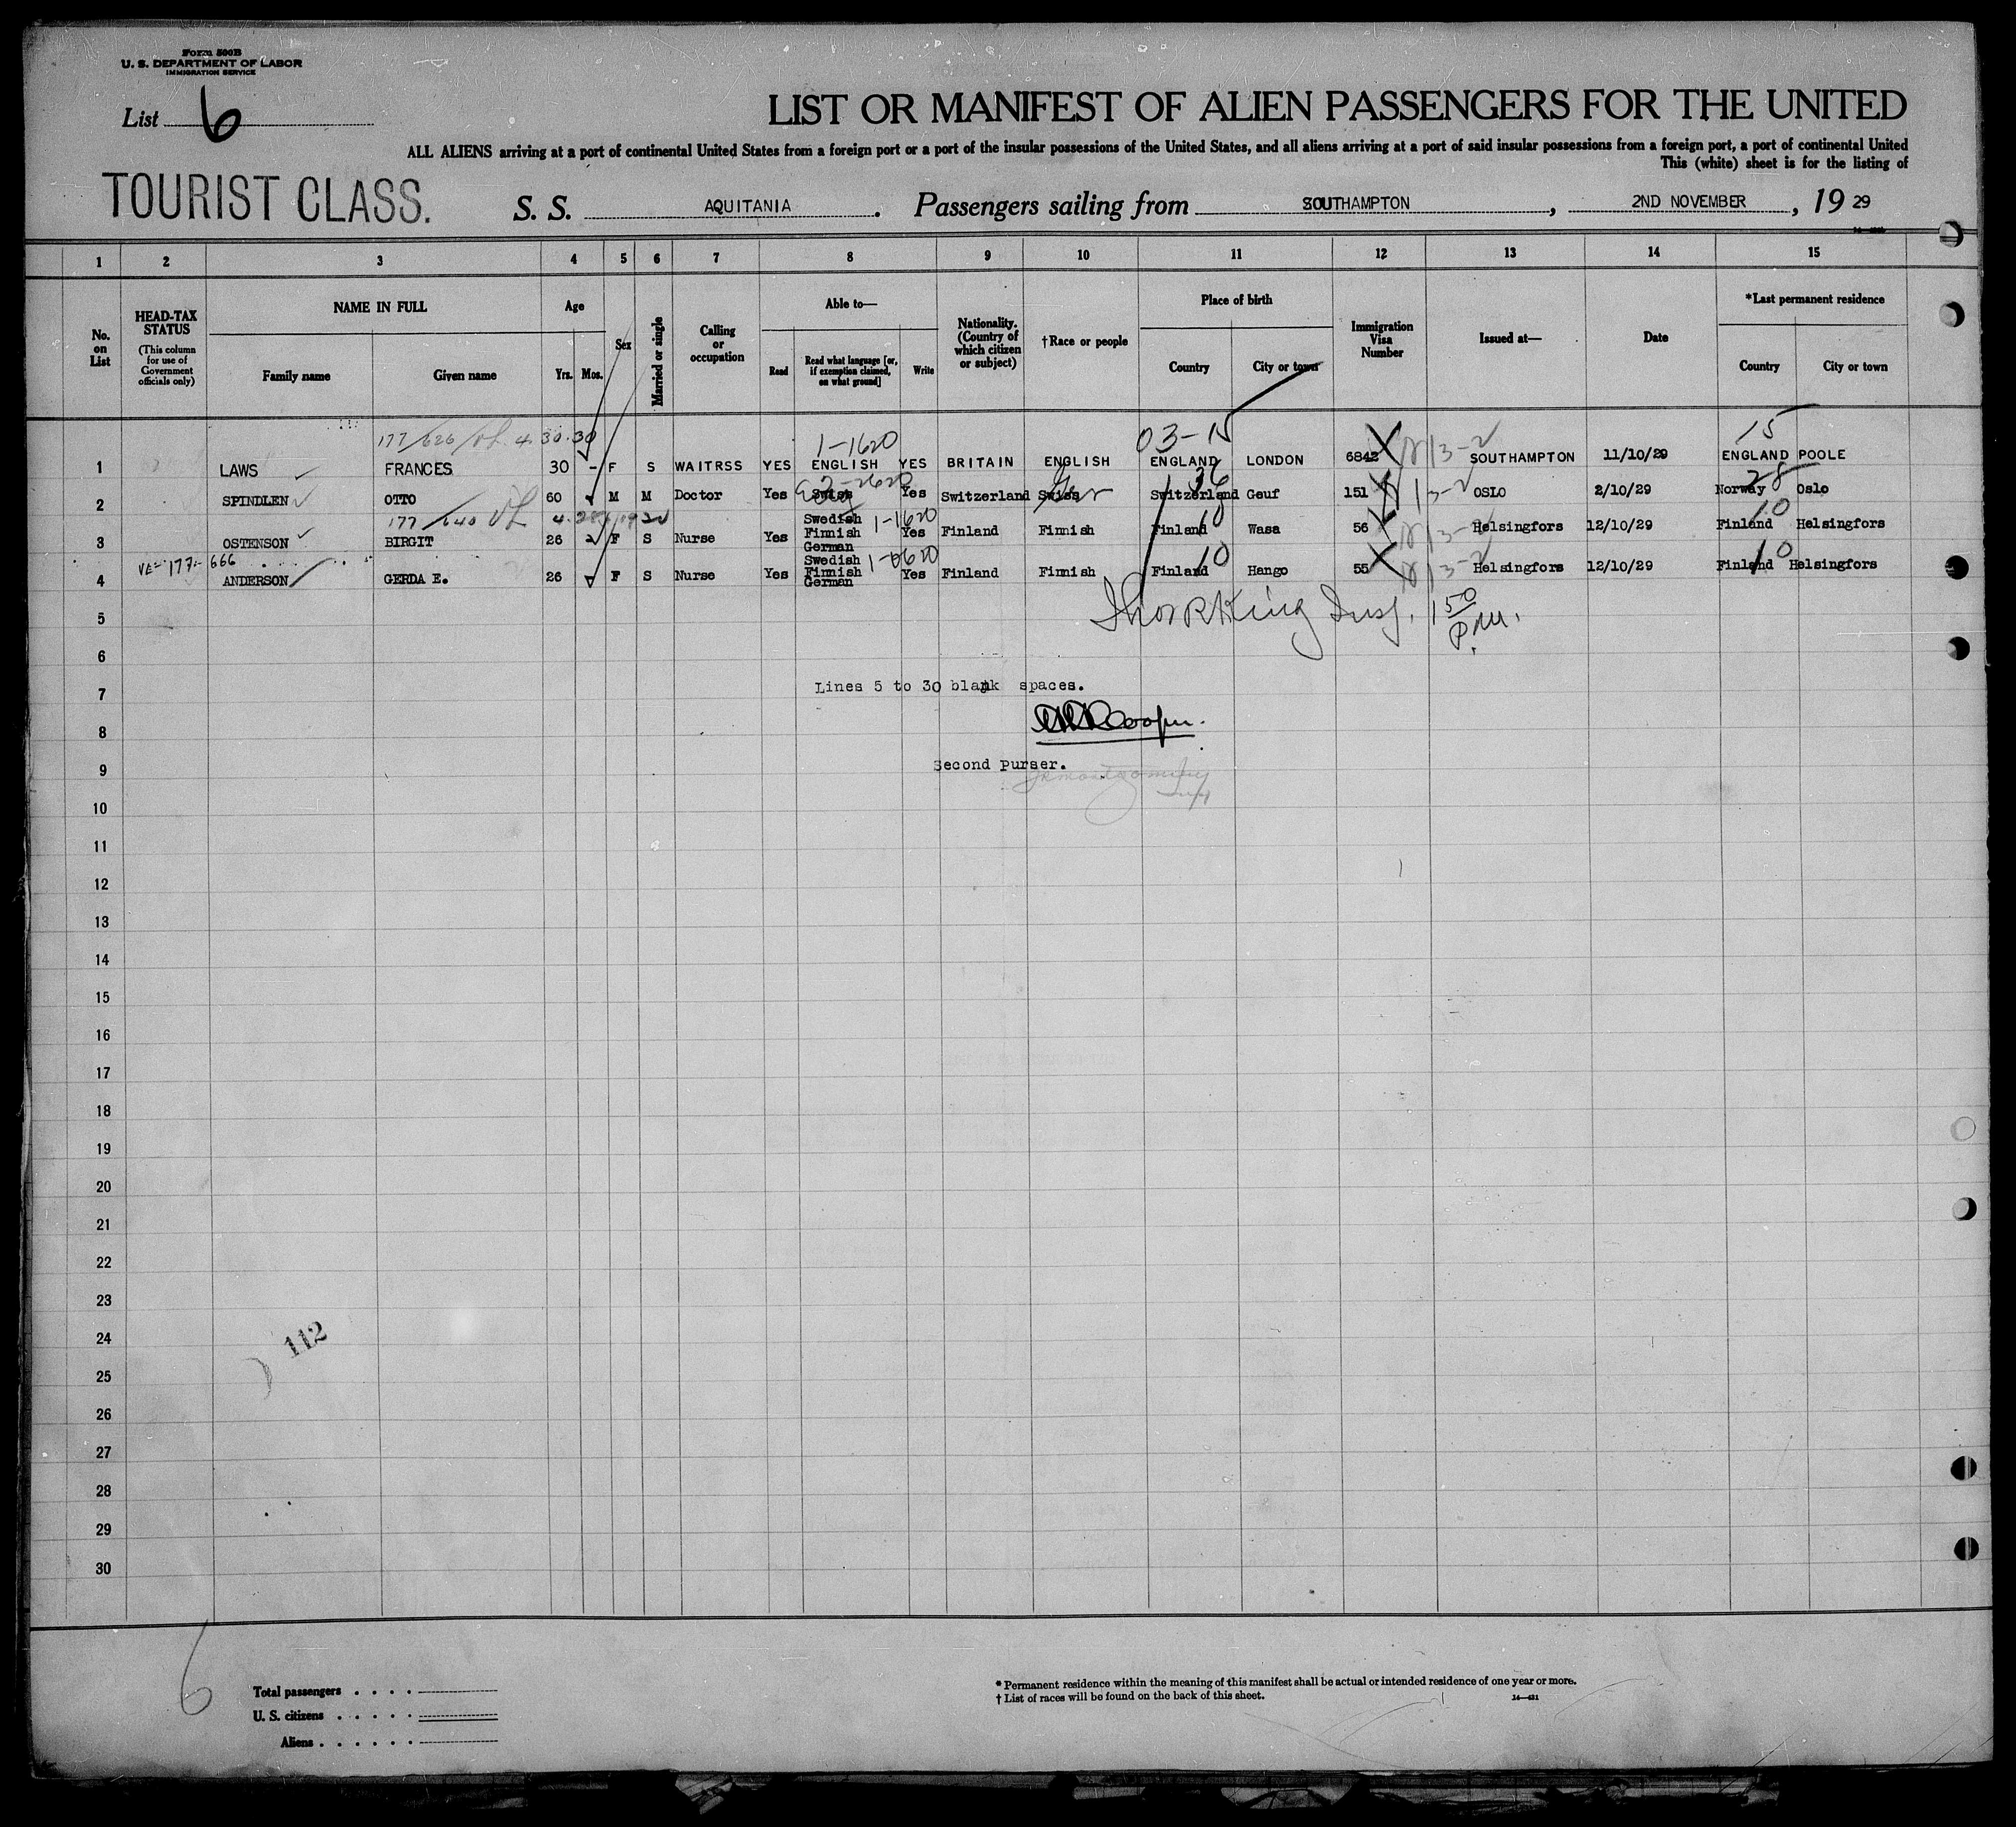 Form 500B
U. S. DEPARTMENT OF LABOR
IMMIGRATION SERVICE
List 6
LIST OR MANIFEST OF ALIEN PASSENGERS FOR THE UNITED
ALL ALIENS arriving at a port of continental United States from a foreign port or a port of the insular possessions of the United States, and all aliens arriving at a port of said insular possessions from a foreign port, a port of continental United
This (white) sheet is for the listing of
TOURIST CLASS. S. S. AQUITANIA. Passengers sailing from SOUTHAMPTON, 2ND NOVEMBER, 19 29
1 2 3 4 5 6 7 8 9 10 11 12 13 14 15
No. on List
HEAD-TAX STATUS
(This column for use of Government officials only)
NAME IN FULL
Family name Given name
Age
Yrs. Mos.
Sex
Married or single
Calling or occupation
Able to—
Read Read what language [or, if exemption claimed, on what ground] Write
Nationality. (Country of which citizen or subject)
†Race or people
Place of birth
Country City or town
Immigration Visa Number
Issued at—
Date
*Last permanent residence
Country City or town
177/626 4.30.30 1-1620 03-15 15
1 LAWS FRANCES 30 - F S WAITRSS YES ENGLISH YES BRITAIN ENGLISH ENGLAND LONDON 6842 SOUTHAMPTON 11/10/29 ENGLAND POOLE
2-2620 36 28
2 SPINDLEN OTTO 60 M M Doctor Yes Swiss Yes Switzerland Swiss Ger Switzerland Geuf 151 OSLO 2/10/29 Norway Oslo
177/640 1-1620 10 10
3 OSTENSON BIRGIT 26 F S Nurse Yes Swedish Finnish German Yes Finland Finnish Finland Wasa 56 Helsingfors 12/10/29 Finland Helsingfors
177-666 1-0620 10 10
4 ANDERSON GERDA E. 26 F S Nurse Yes Swedish Finnish German Yes Finland Finnish Finland Hango 55 Helsingfors 12/10/29 Finland Helsingfors
King Insp. 1 50 P.M.
5
6
7 Lines 5 to 30 blank spaces.
Cooper.
8
Second Purser.
9
10
11
12
13
14
15
16
17
18
19
20
21
22
23
24
112
25
26
27
28
29
30
6
Total passengers
U. S. citizens
Aliens
* Permanent residence within the meaning of this manifest shall be actual or intended residence of one year or more.
† List of races will be found on the back of this sheet.
14—421